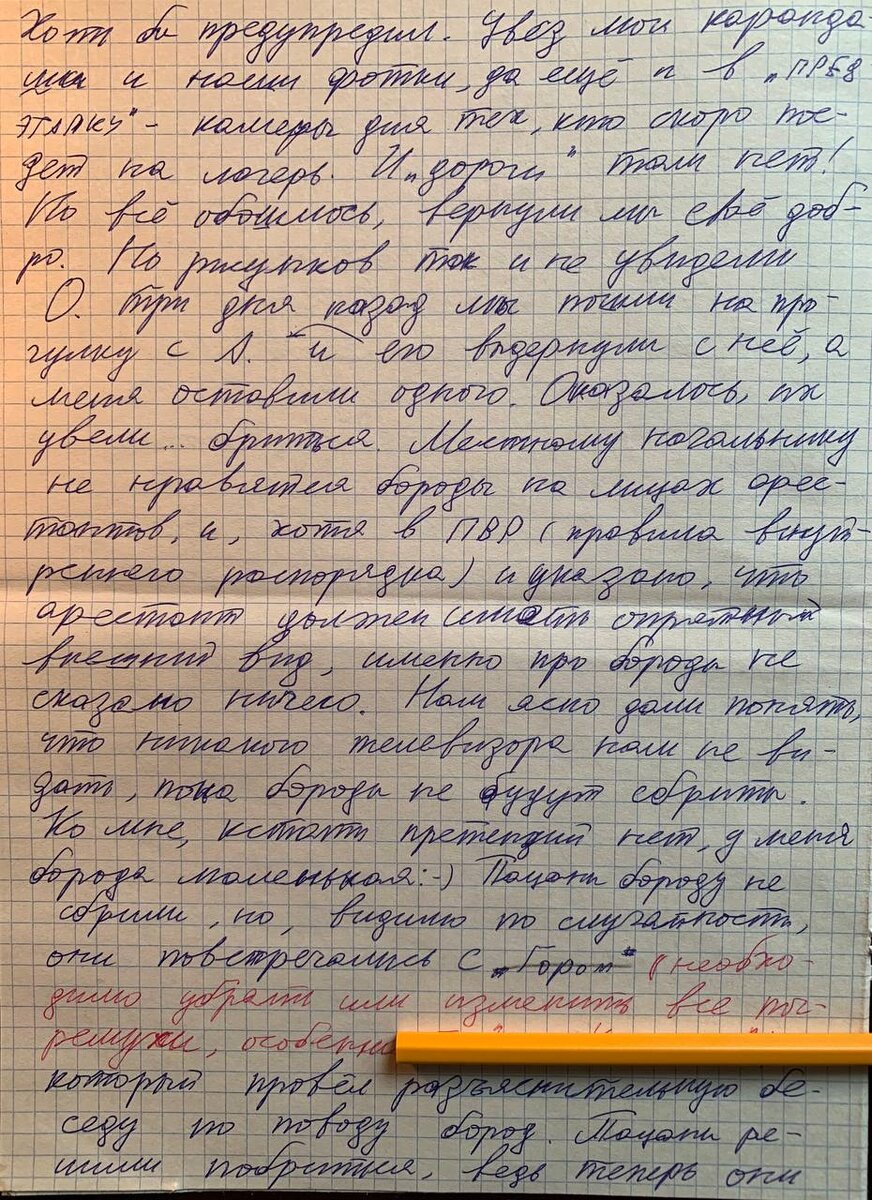 Хотя бы предупредил. Увёз мои каранда-
ши и наши фотки, да ещё и в "ПРЕД
ЭТАПКУ" - камеры для тех, кто скоро пое-
дет на лагерь. И "дороги" там нет!
Но всё обошлось, вернули мы своё доб-
ро. Но рыжиков так и не увидели
О. три дня назад мы пошли на про-
гулку с А. и его выдернули с неё, а
меня оставили одного. Оказалось, их
увели... бриться. Местному начальнику
не нравятся бороды на лицах арес-
тантов, и, хотя в ПВР (правила внут-
реннего распорядка) и указано, что
арестант должен иметь опрятный
внешний вид, именно про бороды не
сказано ничего. Нам ясно дали понять,
что никакого телевизора нам не ви-
дать, пока бороды не будут сбриты.
Ко мне, кстати претензий нет, у меня
борода маленькая:-) Пацаны бороду не
сбрили, но, видимо по случайности,
они повстречались с "Гором" (необхо-
димо убрать или изменить все по-
ремухи, особенно
который провёл разъяснительную бе-
седу по поводу бород. Пацаны ре-
шили побриться, ведь теперь они